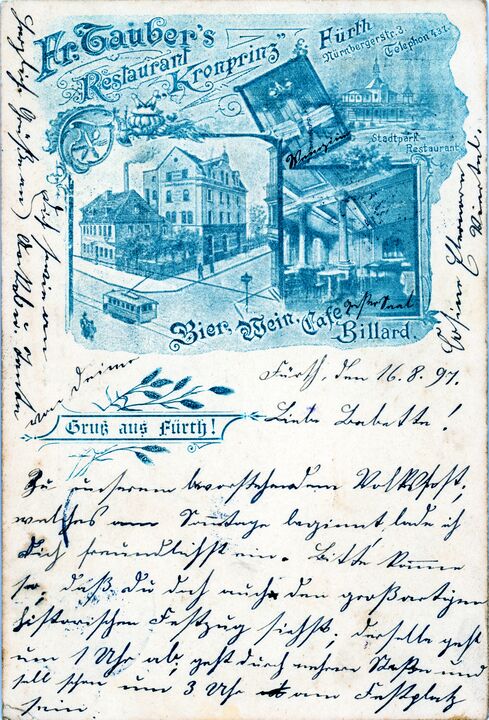 Fr. Tauber's
Restaurant
"Kronprinz"
Fürth
Nürnbergerstr. 3.
Telephon 437.
Stadtpark-
Restaurant
Bier, Wein, Cafe
Billard.
Gruß aus Fürth!
Fürth, den 16.8.97.
Liebe Babette!
Zu unserem bevorstehendem Volksfest,
welches am Sonntage beginnt, lade ich
Dich freundlichst ein. Bitte komme
so, daß Du doch auch den großartigen
historischen Festzug siehst; derselbe geht
um 1 Uhr ab, geht durch mehrere Straßen und
soll schon um 3 Uhr am Festplatz
sein
Herzliche Grüße an
Dich sowie an
von Deiner